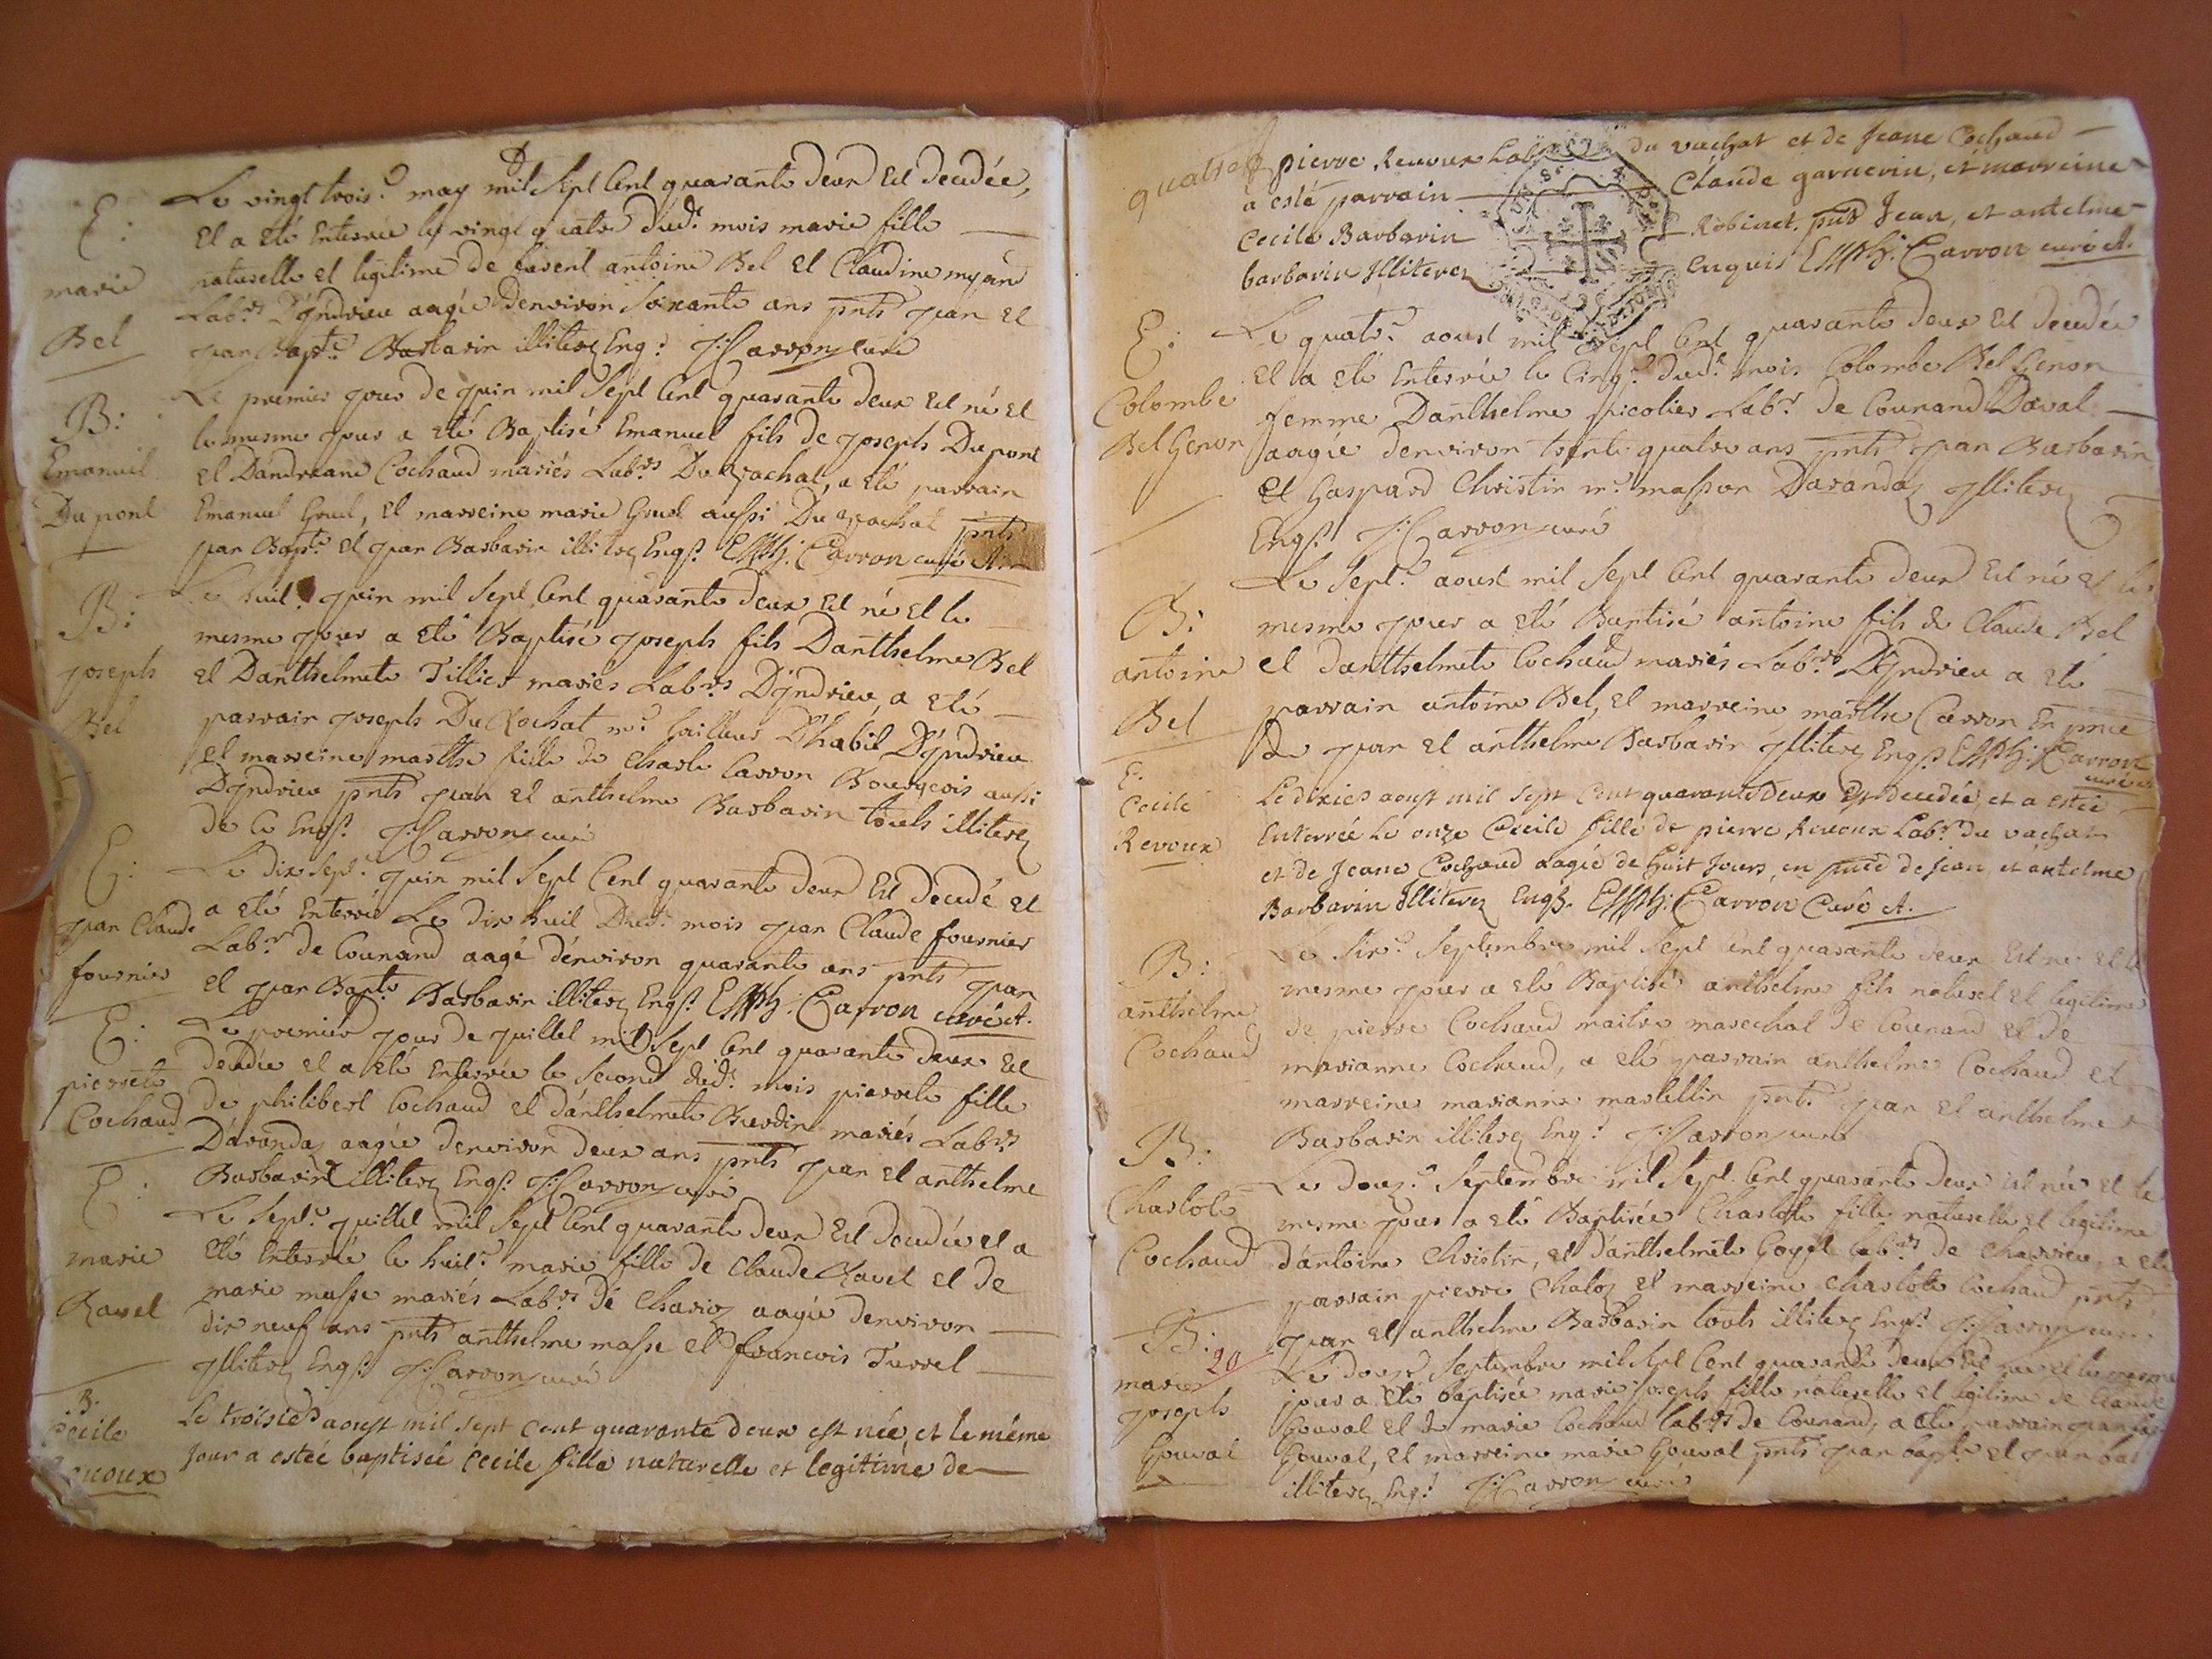 E:
marie
Bel
Le vingt trois.e may mil Sept Cent quarante deux Est decedée,
El a Eté Enterrée le vingt quatre dud.t mois marie fille
naturelle et legitime de furent antoine Bel et Claudine
Lab.rs D'Yndrieu aagée denviron Soixante ans pnts jean et
jean Bapt.e Barbarin illiterez Enq.s J: Carron curé
B:
Emanuel
Dupont
Le premier jour de juin mil Sept Cent quarante deux Est né et
le mesme jour a Eté Baptisé Emanuel fils de joseph Dupont
et Dandreane Cochaud mariés Lab.rs Du Vachat, a Eté parrain
Emanuel Goud, et marreine marie Goud aussi Du Vachat pnts
jean Bapt.e et jean Barbarin illiterez Enq.s Carron curé A.
B:
joseph
Bel
Le huit.e juin mil Sept Cent quarante deux Est né Et le
mesme jour a Eté Baptisé joseph fils Danthelme Bel
et Danthelmete Tillier mariés Lab.rs D'Yndrieu, a Eté
parrain joseph Du Rochat m.e tailleur D'habit D'Yndrieu
et marreine marthe fille de Charle Carron Bourgeois aussi
D'Yndrieu pnts jean et anthelme Barbarin touts illiterez
de ce Enq.s J: Carron curé
E:
jean Claude
fournier
Le dix Sept.e juin mil Sept Cent quarante deux Est decedé et
a Eté Enterré Le dix huit Dud.t mois jean Claude fournier
Lab.r de Counand aagé denviron quarante ans pnts jean
et jean Bapt.e Barbarin illiterez Enq.s Carron curé A.
E:
pierrete
Cochaud
Le premier jour de juillet mil Sept Cent quarante deux Est
decedée et a Eté Enterrée le Second dud.t mois pierrete fille
de philibert Cochaud et danthelmete Burdin mariés Lab.rs
Davandaz aagée denviron deux ans pnts jean et anthelme
Barbarin illiterez Enq.s J: Carron curé
E:
marie
Ravet
Le Sept.e juillet mil Sept Cent quarante deux Est decedée et a
Eté Enterrée le huit.e marie fille de Claude Ravet et de
marie masse mariés Lab.rs de Chariez aagée denviron
dix neuf ans pnts anthelme masse et francois Turrel
illiterez Enq.s J: Carron curé
B.
Cecile
Revoux
Le troisieme aoust mil sept cent quarante deux est née, et le même
jour a estée baptisée Cecile fille naturelle et legitime de
quatre
pierre Revoux Lab.r du vachat et de Jeane Cochaud
a esté parrain Claude garnerin, et marreine
Cecile Barbarin Robinet. pnts Jean, et antelme
barbarin Illiterez enquis Carron curé A.
E:
Colombe
Bel Genon
Le quatr.e aoust mil Sept Cent quarante deux Est decedée
Et a Eté Enterrée le Cinq.e dud.t mois Colombe Bel Genon
femme Danthelme picolier Lab.r de Counand Daval
aagée denviron trente quatre ans pnts jean Barbarin
et Gaspard Christin m.e masson Davandaz illiterez
Enq.s J: Carron curé
B:
antoine
Bel
Le Sept.e aoust mil Sept Cent quarante deux Est né et le
mesme jour a Eté Baptisé antoine fils de Claude Bel
et danthelmete Cochaud mariés Lab.rs D'Yndrieu a Eté
parrain antoine Bel, et marreine marthe Carron En pnce
De jean et anthelme Barbarin illiterez Enq.s Carron
curé A.
E.
Cecile
Revoux
Le dixieme aoust mil sept Cent quarante deux Est decedée, et a estée
Enterrée le onze Cecile fille de pierre Revoux Lab.r du vachat
et de Jeane Cochaud aagée de huit Jours, en pnce de Jean et antelme
Barbarin Illiterez Enq.s Carron Curé A.
B:
anthelme
Cochaud
Le Six.e Septembre mil Sept Cent quarante deux Est né et le
mesme jour a Eté Baptisé anthelme fils naturel et legitime
de pierre Cochaud maitre marechal de Counand et de
marianne Cochaud, a Eté parrain anthelme Cochaud et
marreine marianne martellin pnts jean et anthelme
Barbarin illiterez Enq.s J: Carron curé
B:
Charlote
Cochaud
Le douz.e Septembre mil Sept Cent quarante deux Est née et le
mesme jour a Eté Baptisée Charlote fille naturelle et legitime
d'antoine Christin, et d'anthelmete Goyft lab.rs de charrieu, a Eté
parrain pierre Chaloz et marreine charlote Cochaud pnts
jean et anthelme Barbarin touts illiterez Enq.s J: Carron curé
B:
20
marie
joseph
Gouval
Le douze Septembre mil Sept Cent quarante deux Est née et le mesme
jour a Eté baptisée marie joseph fille naturelle et legitime de Claude
Gouval et de marie Cochaud lab.rs de Counand, a Eté parrain
Gouval, et marreine marie Gouval pnts jean bapt.e et jean bar
illiterez Enq.s J: Carron curé